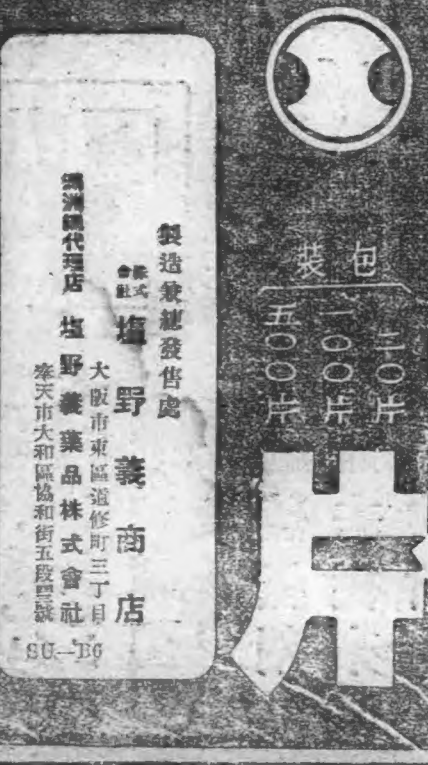 包裝
二〇片
一〇〇片
五〇〇片
片
製造兼總發售處
株式會社 塩野義商店
大阪市東區道修町三丁目
滿洲總代理店 塩野義藥品株式會社
奉天市大和區協和街五段四號
SU—B6